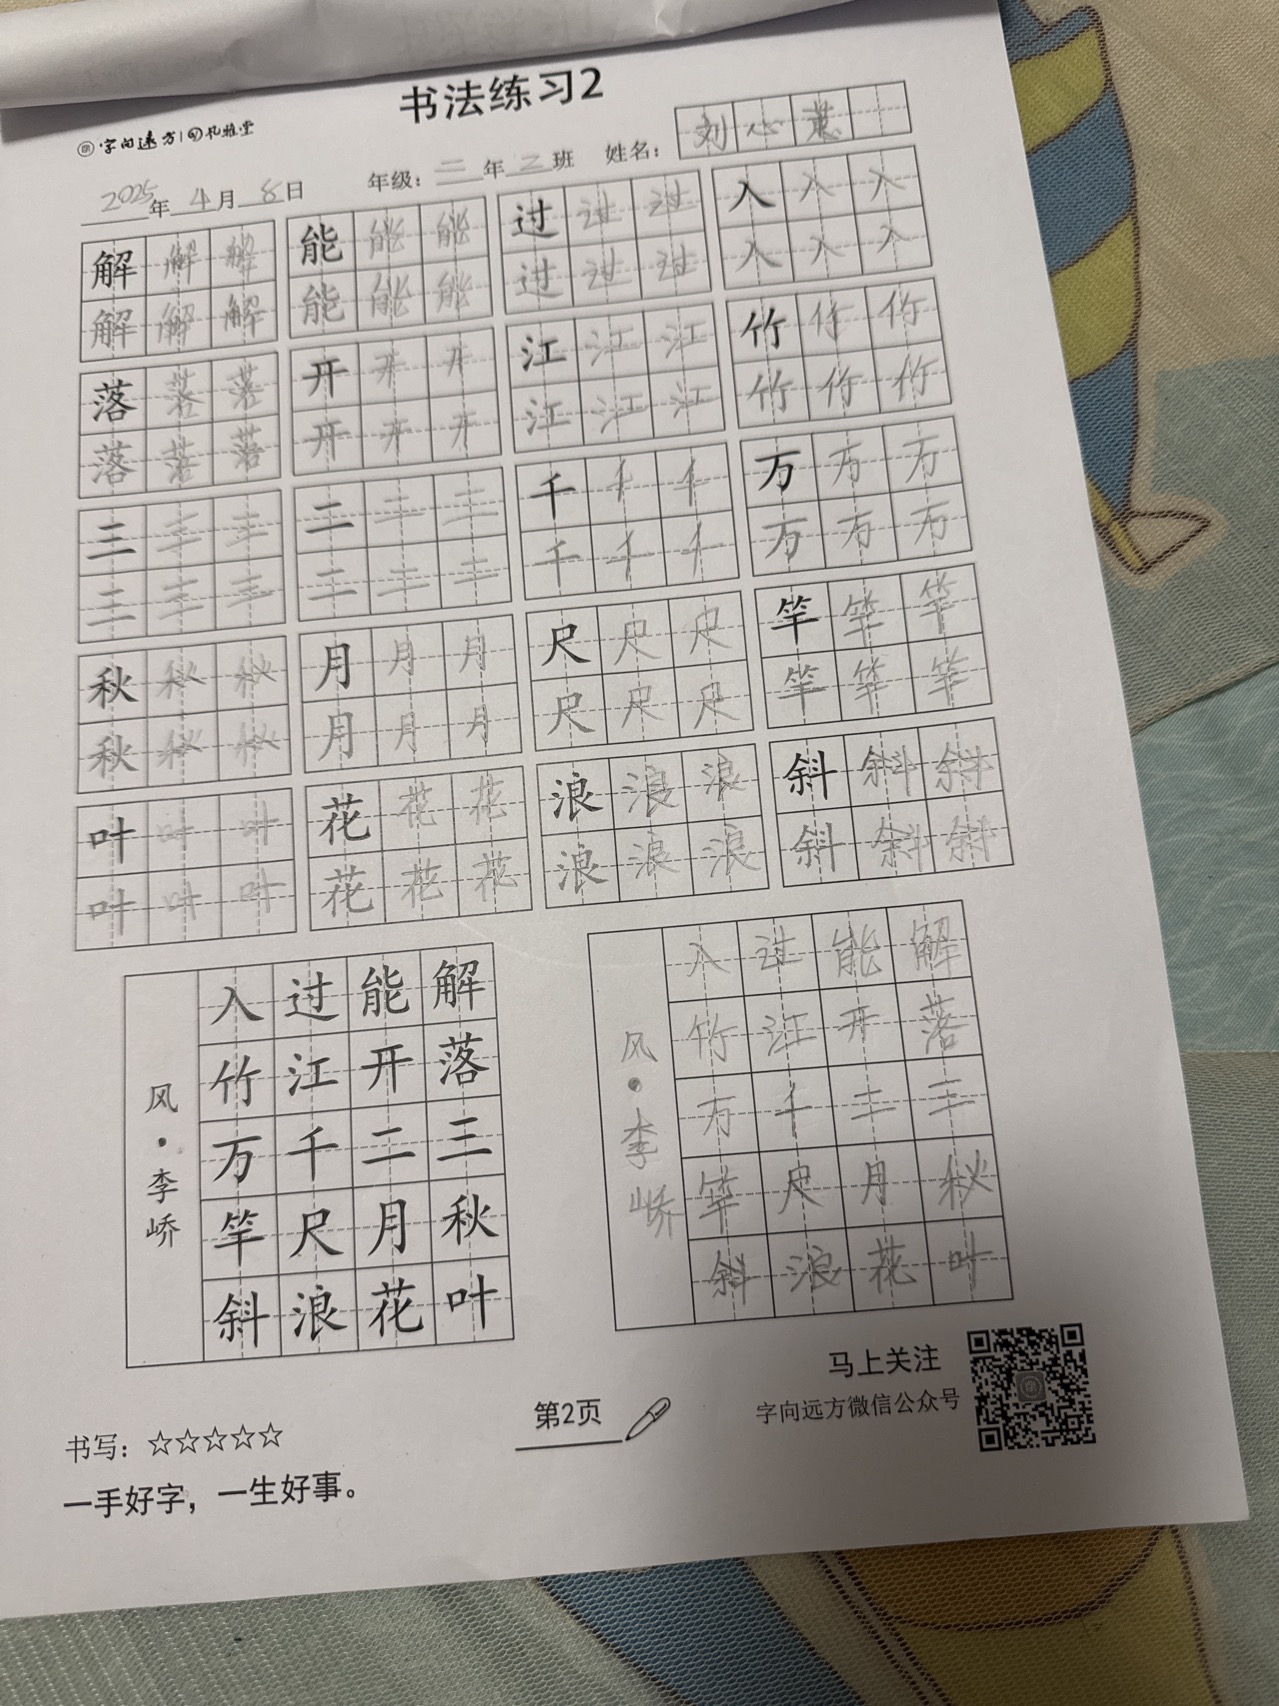 书法练习2
字向远方 札雅堂
2025年4月8日 年级：二年二班 姓名：刘心蕙
解解解 能能能 过过过 入入入
解解解 能能能 过过过 入入入
落落落 开开开 江江江 竹竹竹
落落落 开开开 江江江 竹竹竹
三三三 二二二 千千千 万万万
三三三 二二二 千千千 万万万
秋秋秋 月月月 尺尺尺 竿竿竿
秋秋秋 月月月 尺尺尺 竿竿竿
叶叶叶 花花花 浪浪浪 斜斜斜
叶叶叶 花花花 浪浪浪 斜斜斜
解落三秋叶
能开二月花
过江千尺浪
入竹万竿斜
风·李峤
解落三秋叶
能开二月花
过江千尺浪
入竹万竿斜
风·李峤
书写：☆☆☆☆☆
一手好字，一生好事。
第2页
马上关注
字向远方微信公众号